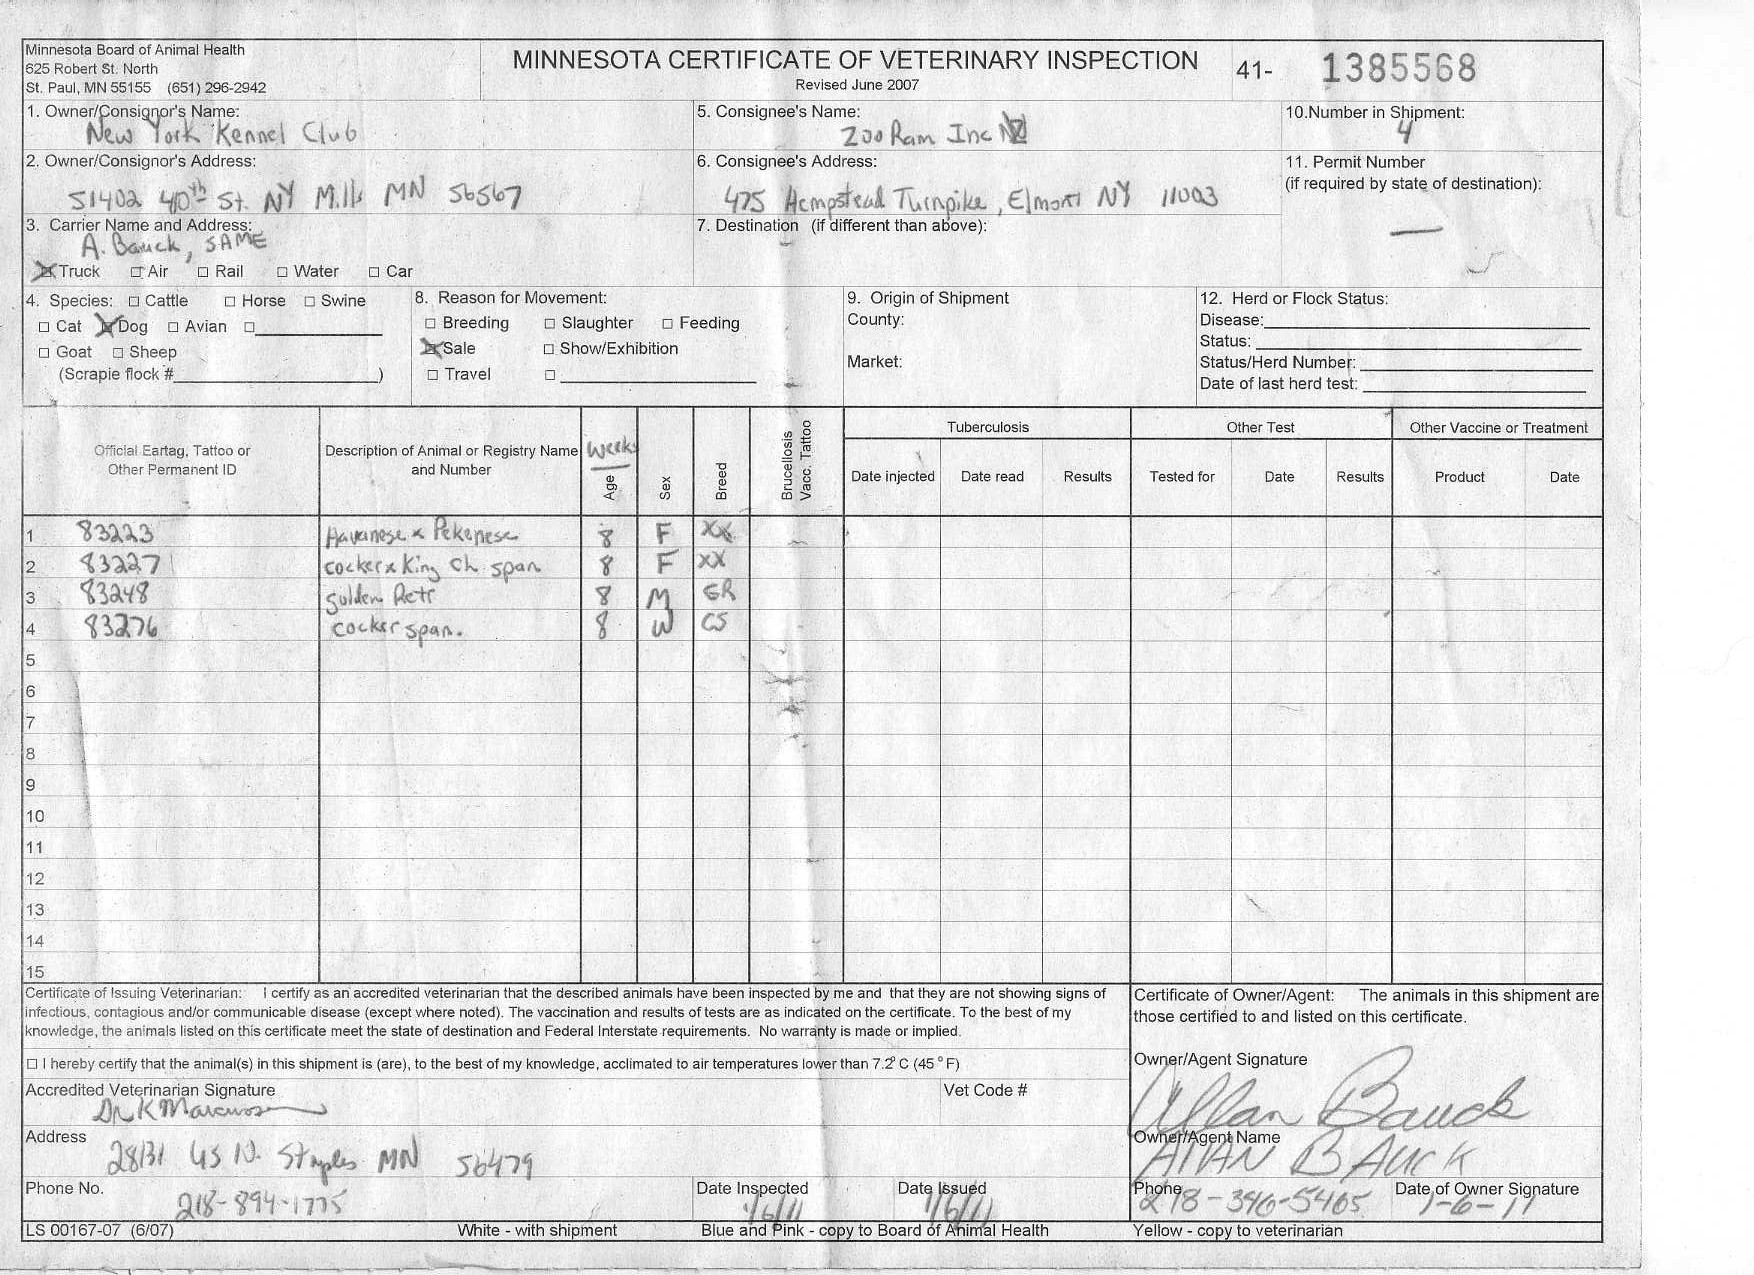 Minnesota Board of Animal Health
625 Robert St. North
St. Paul, MN 55155 (651) 296-2942
MINNESOTA CERTIFICATE OF VETERINARY INSPECTION
Revised June 2007
41- 1385568
1. Owner/Consignor's Name:
New York Kennel Club
5. Consignee's Name:
Zoo Ram Inc
10.Number in Shipment:
4
2. Owner/Consignor's Address:
51402 40th St. NY Mills MN 56567
6. Consignee's Address:
475 Hempstead Turnpike, Elmont NY 11003
11. Permit Number
(if required by state of destination):
—
3. Carrier Name and Address:
A. Bauck, SAME
Truck Air Rail Water Car
7. Destination (if different than above):
4. Species: Cattle Horse Swine
Cat Dog Avian
Goat Sheep
(Scrapie flock # )
8. Reason for Movement:
Breeding Slaughter Feeding
Sale Show/Exhibition
Travel
9. Origin of Shipment
County:
Market:
12. Herd or Flock Status:
Disease:
Status:
Status/Herd Number:
Date of last herd test:
Official Eartag, Tattoo or
Other Permanent ID
Description of Animal or Registry Name
and Number
Weeks
Age
Sex
Breed
Brucellosis
Vacc. Tattoo
Tuberculosis
Date injected Date read Results
Other Test
Tested for Date Results
Other Vaccine or Treatment
Product Date
1 83223 Havanese x Pekenese 8 F XX
2 83227 cocker x King Ch. span 8 F XX
3 83248 golden Retr 8 M GR
4 83276 cocker span. 8 M CS
5
6
7
8
9
10
11
12
13
14
15
Certificate of Issuing Veterinarian: I certify as an accredited veterinarian that the described animals have been inspected by me and that they are not showing signs of
infectious, contagious and/or communicable disease (except where noted). The vaccination and results of tests are as indicated on the certificate. To the best of my
knowledge, the animals listed on this certificate meet the state of destination and Federal Interstate requirements. No warranty is made or implied.
I hereby certify that the animal(s) in this shipment is (are), to the best of my knowledge, acclimated to air temperatures lower than 7.2° C (45 ° F)
Certificate of Owner/Agent: The animals in this shipment are
those certified to and listed on this certificate.
Accredited Veterinarian Signature
Dr K
Vet Code #
Owner/Agent Signature
Allan Bauck
Address
US 10. Staples MN 56479
Owner/Agent Name
AllAN BAUCK
Phone No.
218-894-1775
Date Inspected
1/6/11
Date Issued
1/6/11
Phone
218-346-5465
Date of Owner Signature
1-6-11
LS 00167-07 (6/07)
White - with shipment
Blue and Pink - copy to Board of Animal Health
Yellow - copy to veterinarian